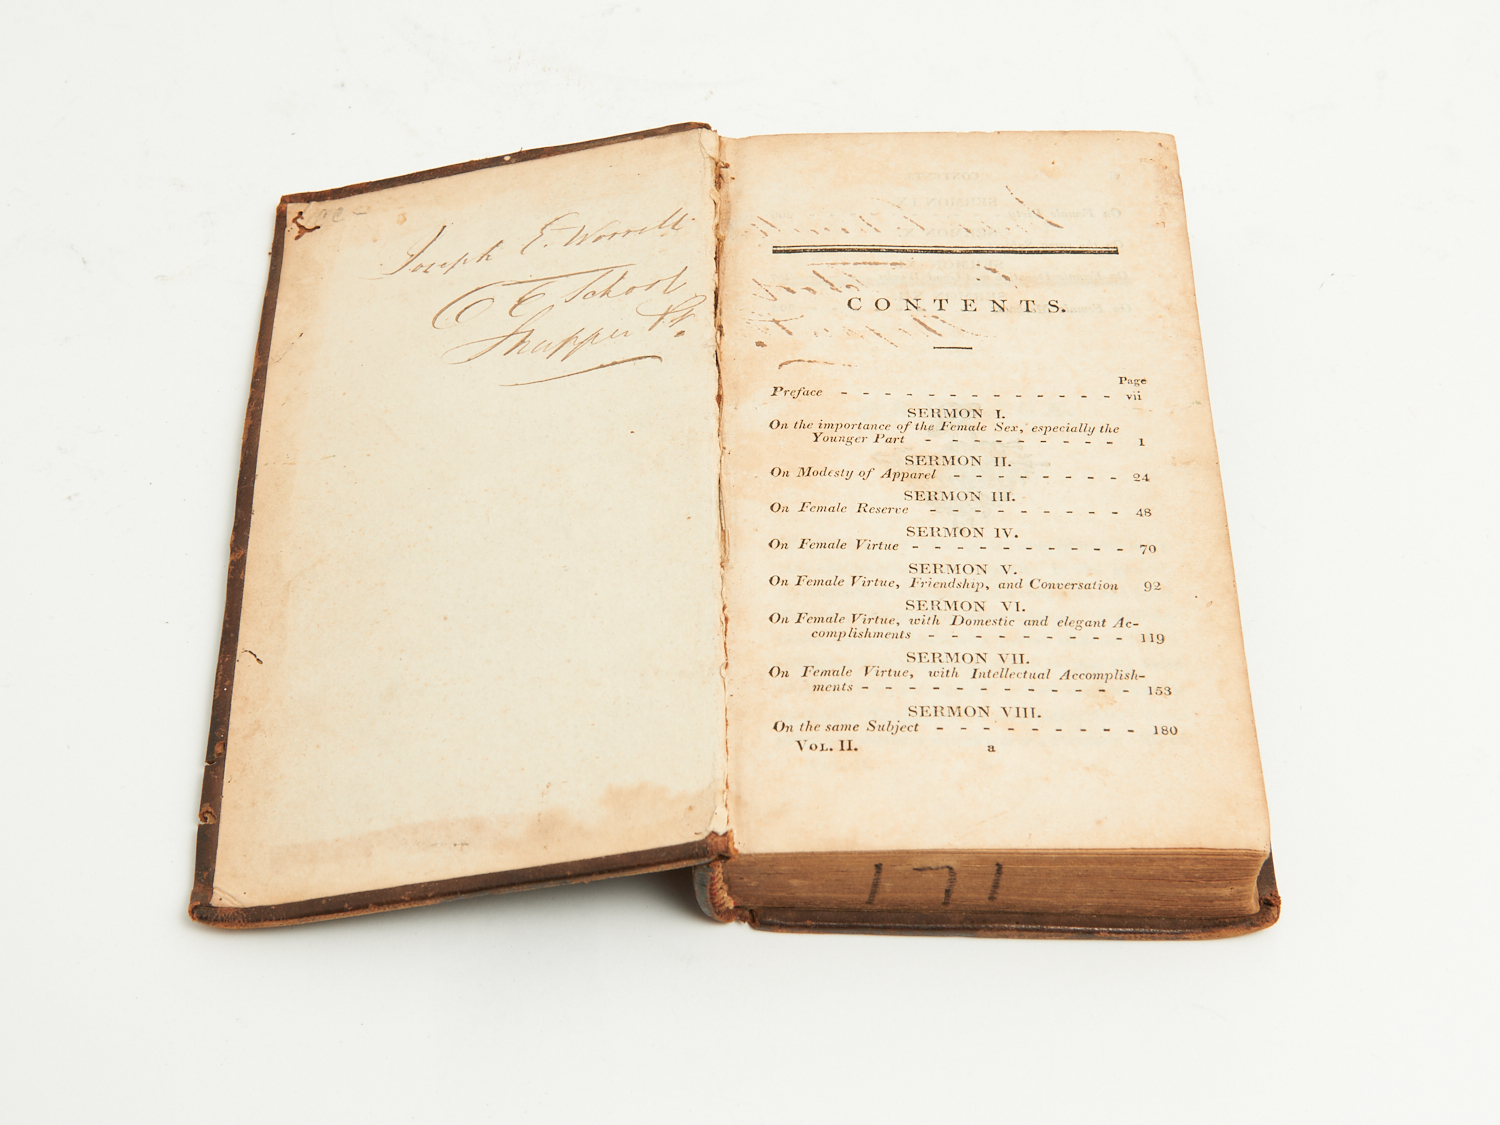 Joseph E. Worrell
C E School
CONTENTS.
Page
Preface - - - - - - - - - - - - - vii
SERMON I.
On the importance of the Female Sex, especially the
Younger Part - - - - - - - - - 1
SERMON II.
On Modesty of Apparel - - - - - - - - 24
SERMON III.
On Female Reserve - - - - - - - - - 48
SERMON IV.
On Female Virtue - - - - - - - - - - 70
SERMON V.
On Female Virtue, Friendship, and Conversation 92
SERMON VI.
On Female Virtue, with Domestic and elegant Ac-
complishments - - - - - - - - - 119
SERMON VII.
On Female Virtue, with Intellectual Accomplish-
ments - - - - - - - - - - - - 153
SERMON VIII.
On the same Subject - - - - - - - - - 180
VOL. II. a
171